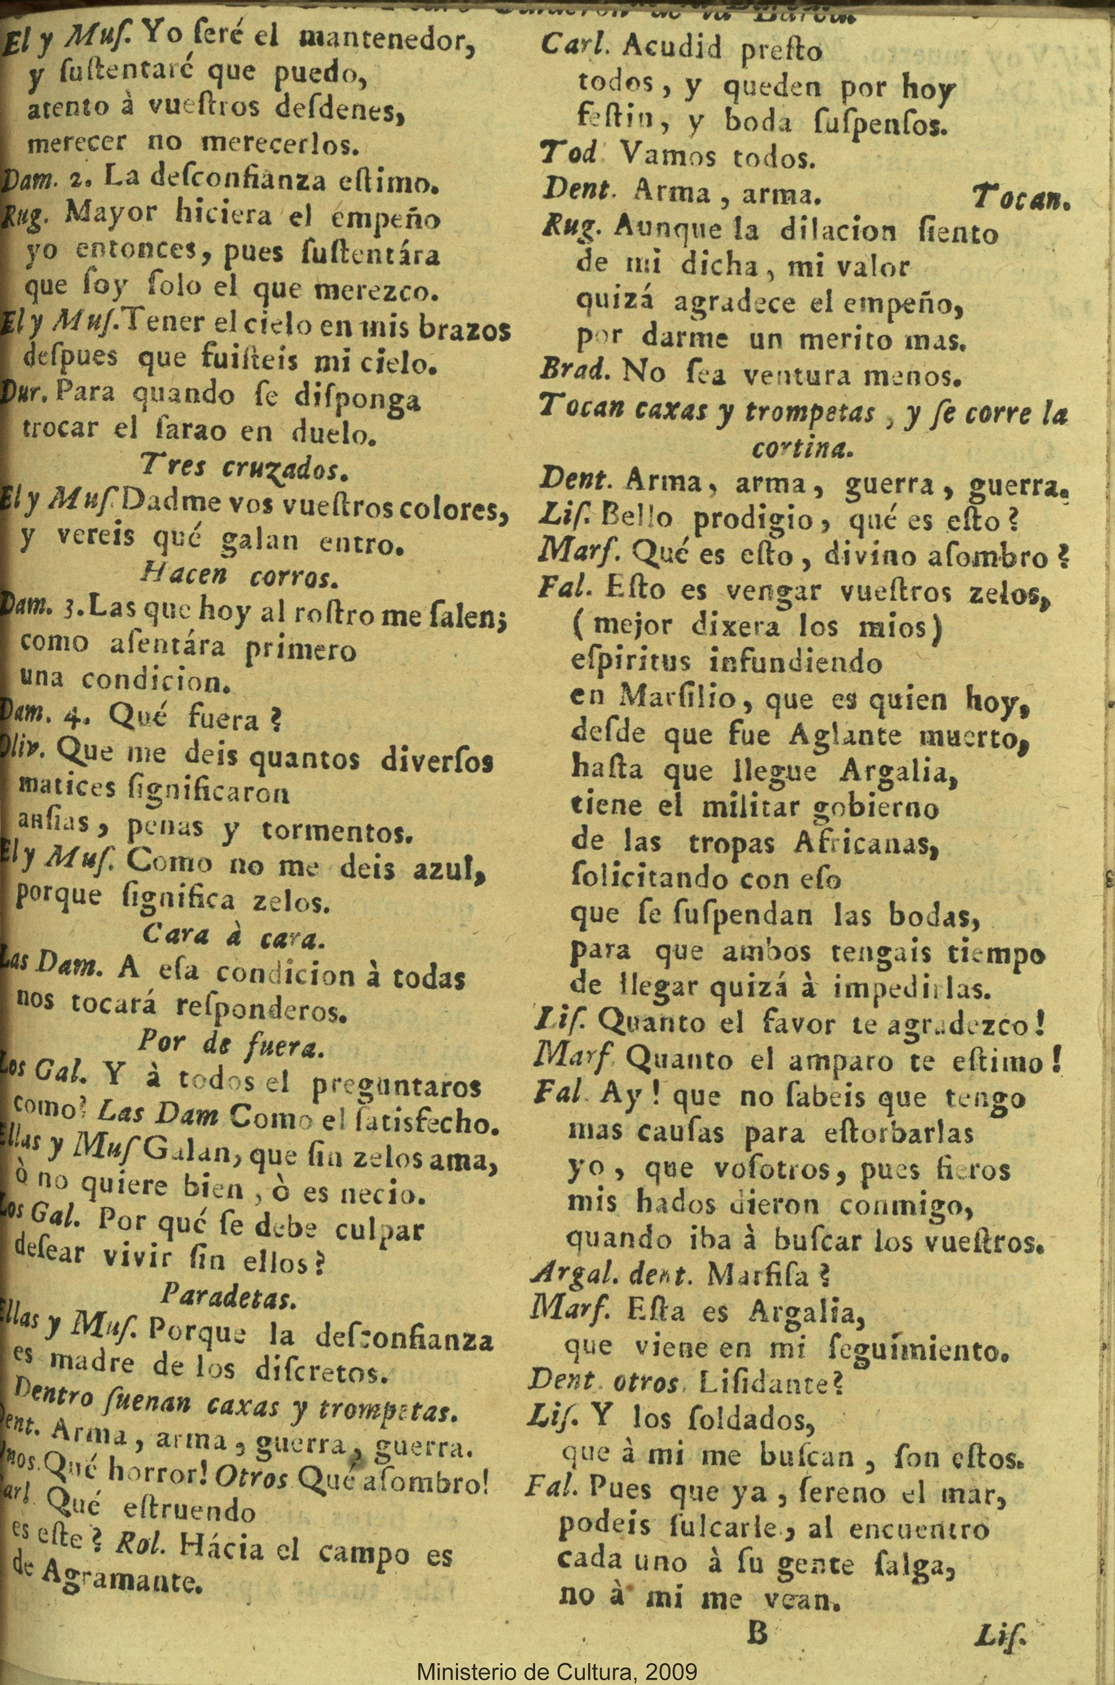 De Don Pedro Calderon de la Barca.
El y Muſ. Yo ſeré el mantenedor,
y ſuſtentaré que puedo,
atento à vueſtros deſdenes,
merecer no merecerlos.
Dam. 2. La deſconfianza eſtimo.
Rug. Mayor hiciera el empeño
yo entonces, pues ſuſtentára
que ſoy ſolo el que merezco.
El y Muſ. Tener el cielo en mis brazos
deſpues que fuiſteis mi cielo.
Dur. Para quando ſe diſponga
trocar el ſarao en duelo.
Tres cruzados.
El y Muſ Dadme vos vueſtros colores,
y vereis qué galan entro.
Hacen corros.
Dam. 3. Las que hoy al roſtro me ſalen;
como aſentára primero
una condicion.
Dam. 4. Qué fuera ?
Oliv. Que me deis quantos diverſos
matices ſignificaron
anſias, penas y tormentos.
El y Muſ. Como no me deis azul,
porque ſignifica zelos.
Cara à cara.
Las Dam. A eſa condicion à todas
nos tocará reſponderos.
Por de fuera.
Los Gal. Y à todos el preguntaros
como? Las Dam Como el ſatisfecho.
Ellas y Muſ Galan, que ſin zelos ama,
ò no quiere bien, ò es necio.
Los Gal. Por qué ſe debe culpar
deſear vivir ſin ellos?
Paradetas.
Ellas y Muſ. Porque la deſconfianza
es madre de los diſcretos.
Dentro ſuenan caxas y trompetas.
Dent. Arma, arma, guerra, guerra.
Unos. Qué horror! Otros Qué aſombro!
Carl. Qué eſtruendo
es eſte? Rol. Hácia el campo es
de Agramante.
Carl. Acudid preſto
todos, y queden por hoy
feſtin, y boda ſuſpenſos.
Tod. Vamos todos.
Dent. Arma, arma. Tocan.
Rug. Aunque la dilacion ſiento
de mi dicha, mi valor
quizá agradece el empeño,
por darme un merito mas.
Brad. No ſea ventura menos.
Tocan caxas y trompetas, y ſe corre la
cortina.
Dent. Arma, arma, guerra, guerra.
Liſ. Bello prodigio, qué es eſto?
Marſ. Qué es eſto, divino aſombro?
Fal. Eſto es vengar vueſtros zelos,
(mejor dixera los mios)
eſpiritus infundiendo
en Marſilio, que es quien hoy,
deſde que fue Aglante muerto,
haſta que llegue Argalia,
tiene el militar gobierno
de las tropas Africanas,
ſolicitando con eſo
que ſe ſuſpendan las bodas,
para que ambos tengais tiempo
de llegar quizá à impedirlas.
Liſ. Quanto el favor te agradezco!
Marſ Quanto el amparo te eſtimo!
Fal. Ay! que no ſabeis que tengo
mas cauſas para eſtorbarlas
yo, que voſotros, pues fieros
mis hados dieron conmigo,
quando iba à buſcar los vueſtros.
Argal. dent. Marfiſa?
Marſ. Eſta es Argalia,
que viene en mi ſeguimiento.
Dent. otros. Liſidante?
Liſ. Y los ſoldados,
que à mi me buſcan, ſon eſtos.
Fal. Pues que ya, ſereno el mar,
podeis ſulcarle, al encuentro
cada uno à ſu gente ſalga,
no à mi me vean.
B Liſ.
Ministerio de Cultura, 2009